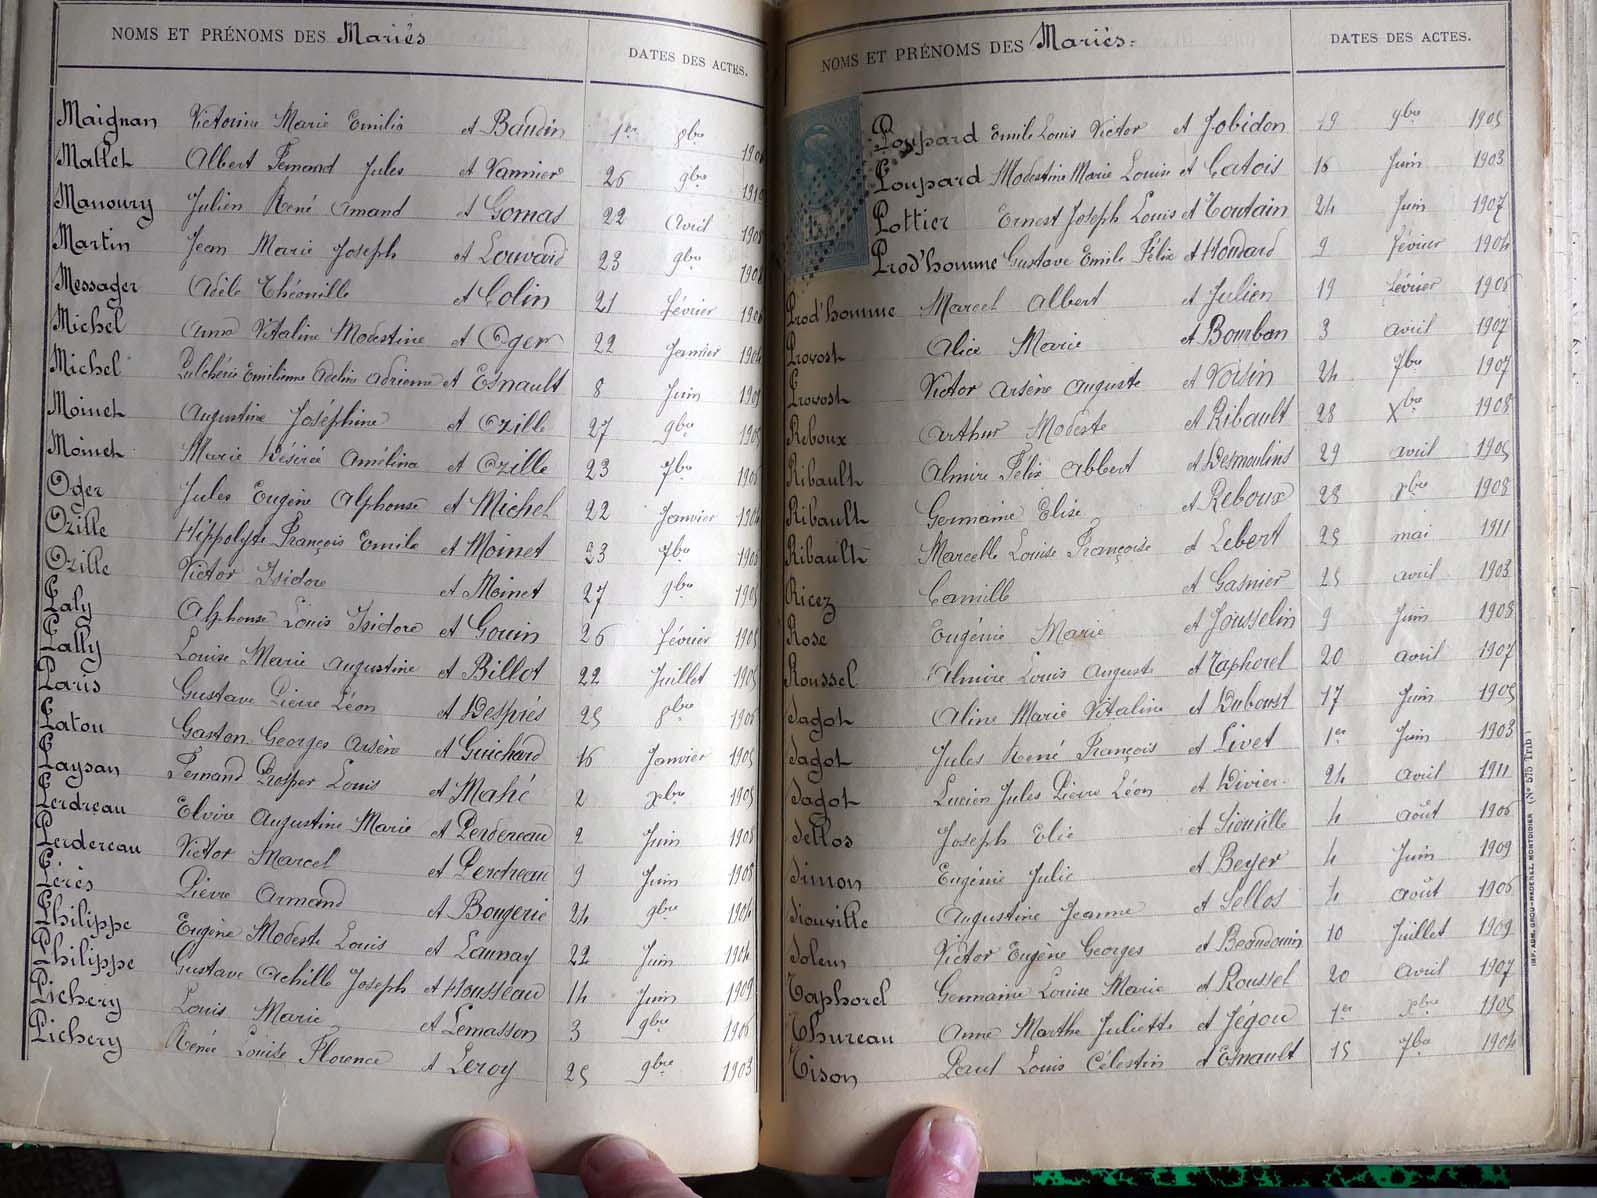 NOMS ET PRÉNOMS DES Mariés DATES DES ACTES.
Maignan Victorine Marie Emilie et Baudin 1er 8bre
Mallet Albert Fernand Jules et Vannier 26 9bre 1910
Manoury Julien René Amand et Gomas 22 Avril
Martin Jean Marie Joseph et Louvard 23 9bre
Messager Adèle Théonille et Colin 21 février
Michel Anna Vitaline Modestine et Oger 22 Janvier 1904
Michel Pulchérie Emilienne Adrienne et Esnault 8 Juin 1909
Moinet Augustine Joséphine et Ozille 27 9bre 1905
Moinet Marie Désirée Amélina et Ozille 23 7bre 1906
Oger Jules Eugène Alphonse et Michel 22 Janvier 1904
Ozille Hippolyte François Emile et Moinet 23 7bre 1906
Ozille Victor Isidore et Moinet 27 9bre 1905
Paly Alphonse Louis Isidore et Gouin 26 février 1905
Pally Louise Marie Augustine et Billot 22 Juillet 1905
Paris Gustave Pierre Léon et Després 25 8bre 1906
Patou Gaston Georges Arsène et Guichard 16 Janvier 1905
Paysan Fernand Prosper Louis et Mahé 2 Xbre 1905
Perdreau Elvire Augustine Marie et Perdereau 2 Juin
Perdereau Victor Marcel et Perdreau 9 Juin 1908
Pérès Pierre Armand et Bougerie 24 9bre 1904
Philippe Eugène Modeste Louis et Launay 22 Juin 1904
Philippe Gustave Achille Joseph et Housseau 14 Juin 1909
Pichery Louis Marie et Lemasson 3 9bre 1906
Pichery Rénée Louise Florence et Leroy 25 9bre 1903
NOMS ET PRÉNOMS DES Mariés: DATES DES ACTES.
Poupard Emile Louis Victor et Jobidon 19 9bre 1905
Poupard Modestine Marie Louise et Catois 16 Juin 1903
Pottier Ernest Joseph Louis et Toutain 24 Juin 1907
Prod'homme Gustave Emile Félix et Houdard 9 février 1904
Prod'homme Marcel Albert et Julien 19 février 1906
Provost Alice Marie et Bourban 3 avril 1907
Provost Victor Arsène Auguste et Voisin 24 7bre 1907
Reboux Arthur Modeste et Ribault 28 Xbre 1908
Ribault Almire Félix Albert et Desmoulins 29 avril 1905
Ribault Germaine Elise et Reboux 28 Xbre 1908
Ribault Marcelle Louise Françoise et Lebert 25 mai 1911
Ricez Camille et Gasnier 25 avril 1903
Rose Eugénie Marie et Jousselin 9 Juin 1908
Roussel Almire Louis Auguste et Taphorel 20 avril 1907
Sagot Aline Marie Vitaline et Duboust 17 Juin 1905
Sagot Jules René François et Livet 1er Juin 1903
Sagot Lucien Jules Pierre Léon et Divier 24 avril 1911
Sellos Joseph Elie et Siouville 4 août 1906
Simon Eugénie Julie et Beyer 4 Juin 1909
Siouville Augustine Jeanne et Sellos 4 août 1906
Solem Victor Eugène Georges et Beaudouin 10 Juillet 1909
Taphorel Germaine Louise Marie et Roussel 20 avril 1907
Thureau Anne Marthe Juliette et Jégou 1er Xbre 1905
Tison Paul Louis Célestin et Esnault 15 7bre 1904